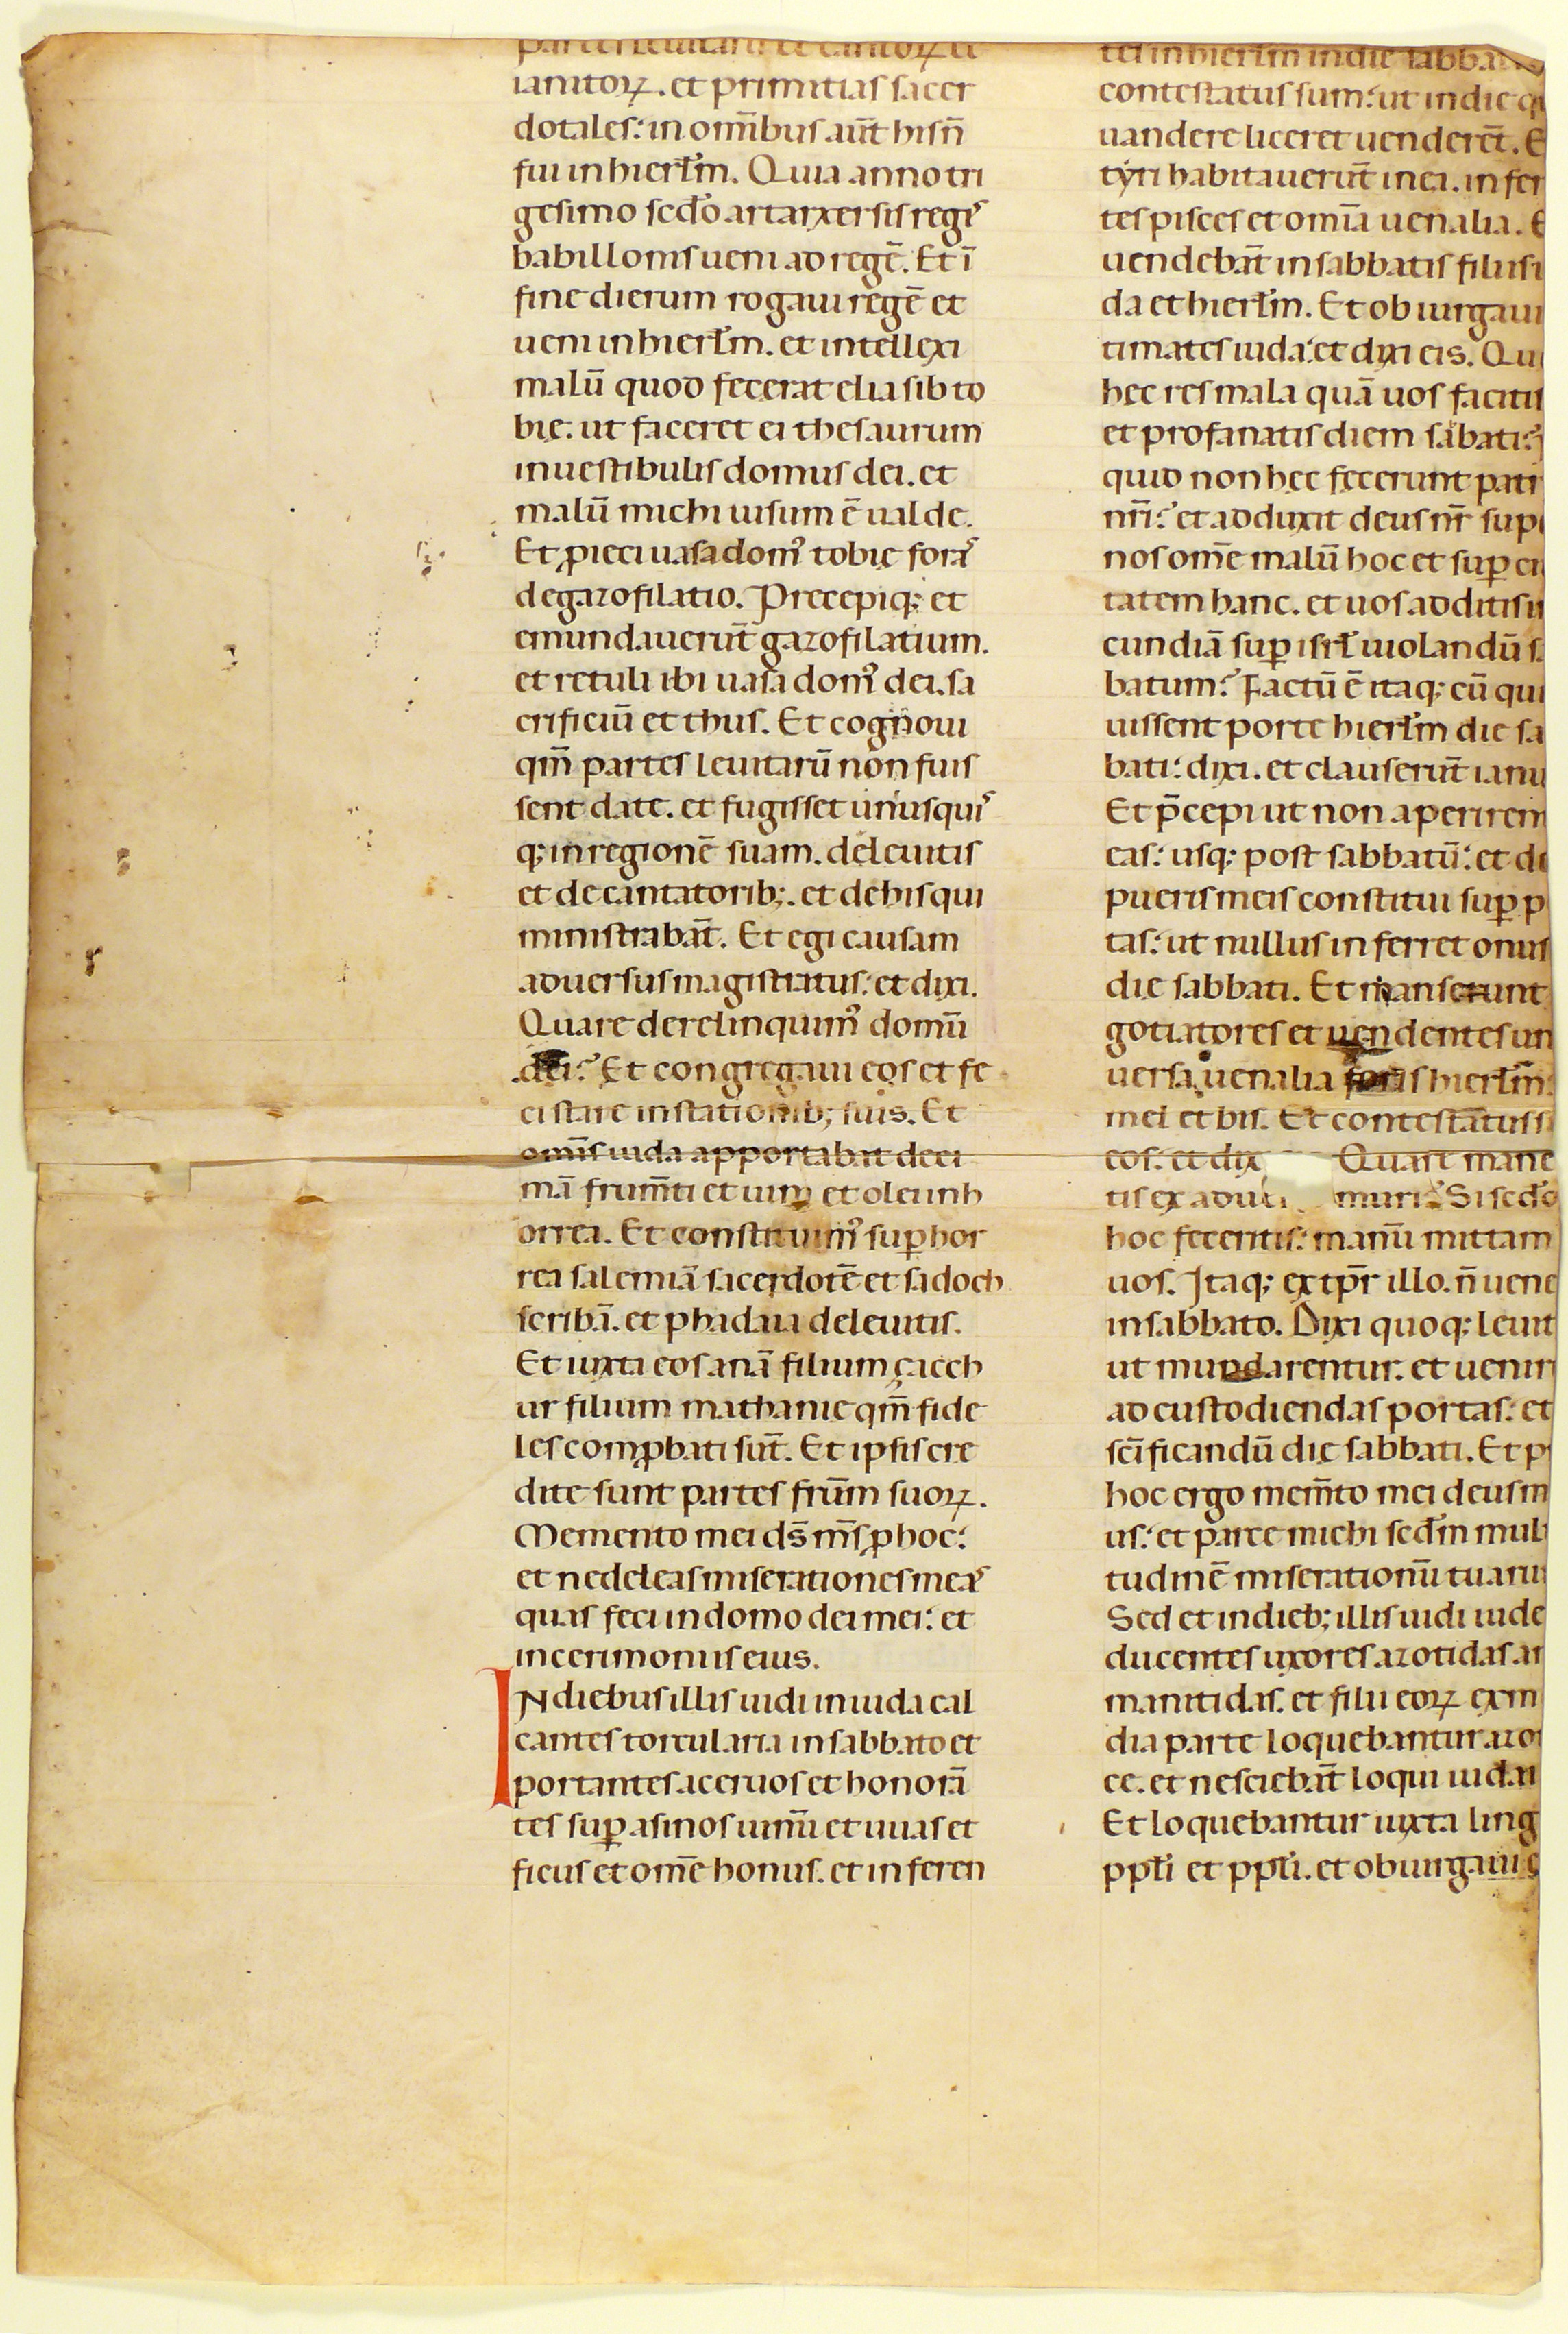 partes leuitarū et cantoꝝ et
ianitoꝝ. et primitias sacer
dotales: in om̄ibus aūt his n̄
fui in hierl̄m. Quia anno tri
gesimo scd̄o artarxersis regis
babillonis ueni ad regē. Et ī
fine dierum rogaui regē et
ueni in hierl̄m. et intellexi
malū quod fecerat eliasib to
bię: ut faceret ei thesaurum
in uestibulis domus dei. et
malū michi uisum ē ualde.
Et ꝓieci uasa domꝰ tobię foras
de gazofilatio. Precepiq; et
emundauerūt gazofilatium.
et retuli ibi uasa domꝰ dei. sa
crificiū et thus. Et cognoui
qm̄ partes leuitarū non fuis
sent datę. et fugisset unusquis
q; in regionē suam. de leuitis
et de cantatorib;. et de his qui
ministrabāt. Et egi causam
aduersus magistratus: et dixi.
Quare derelinquimꝰ domū
dei? Et congregaui eos et fe
ci stare in stationib; suis. Et
om̄is iuda apportabat deci
mā frum̄ti et uini et olei in h
orrea. Et constituimꝰ suꝑ hor
rea salemiā sacerdotē et sadoch
scribā. et phadaia de leuitis.
Et iuxta eos anā filium çacch
ur filium mathanie qm̄ fide
les comꝓbati sūt. Et ipsis cre
dite sunt partes frūm suoꝝ.
Memento mei ds̄ ms̄ ꝓ hoc:
et ne deleas miserationes meas
quas feci in domo dei mei: et
in cerimoniis eius.
IN diebus illis uidi in iuda cal
cantes torcularia in sabbato et
portantes aceruos et honorā
tes suꝑ asinos uinū et uuas et
ficus et om̄e honus. et inferen
tes in hierl̄m in die sabba
contestatus sum: ut in die q
uandere liceret uenderēt. E
tyri habitauerūt in ea. infer
tes pisces et om̄ia uenalia. E
uendebāt in sabbatis filiis i
da et hierl̄m. Et obiurgaui
timates iuda: et dixi eis. Qu
hęc res mala quā uos facitis
et profanatis diem sabati:
quid non hęc fecerunt patr
nr̄i? et adduxit deus nr̄ suꝑ
nos om̄e malū hoc et suꝑ ci
tatem hanc. et uos additis ir
cundiā suꝑ isrl̄ uiolandū s
batum? Factū ē itaq; cū qui
uissent portę hierl̄m die sa
bati: dixi. et clauserūt ianu
Et p̄cepi ut non aperiren
eas: usq; post sabbatū: et de
pueris meis constitui suꝑ p
tas: ut nullus inferret onus
die sabbati. Et manserunt
gotiatores et uendentes un
uersa uenalia foris hierl̄m:
mel et bis. Et contestatus s
eos. et dix Quare mane
tis ex adue muri? Si scd̄o
hoc feceritis: manū mittam
uos. Itaq; ex tp̄r illo. n̄ uene
in sabbato. Dixi quoq; leuit
ut mundarentur. et uenir
ad custodiendas portas: et
scīficandū die sabbati. Et p
hoc ergo mem̄to mei deus m
us: et parce michi scd̄m mul
tudinē miserationū tuaru
Sed et in dieb; illis uidi iude
ducentes uxores azotidas a
manitidas. et filii eoꝝ ex m
dia parte loquebantur azo
ce. et nesciebāt loqui iudai
Et loquebantur iuxta ling
ppl̄i et ppl̄i. et obiurgaui e